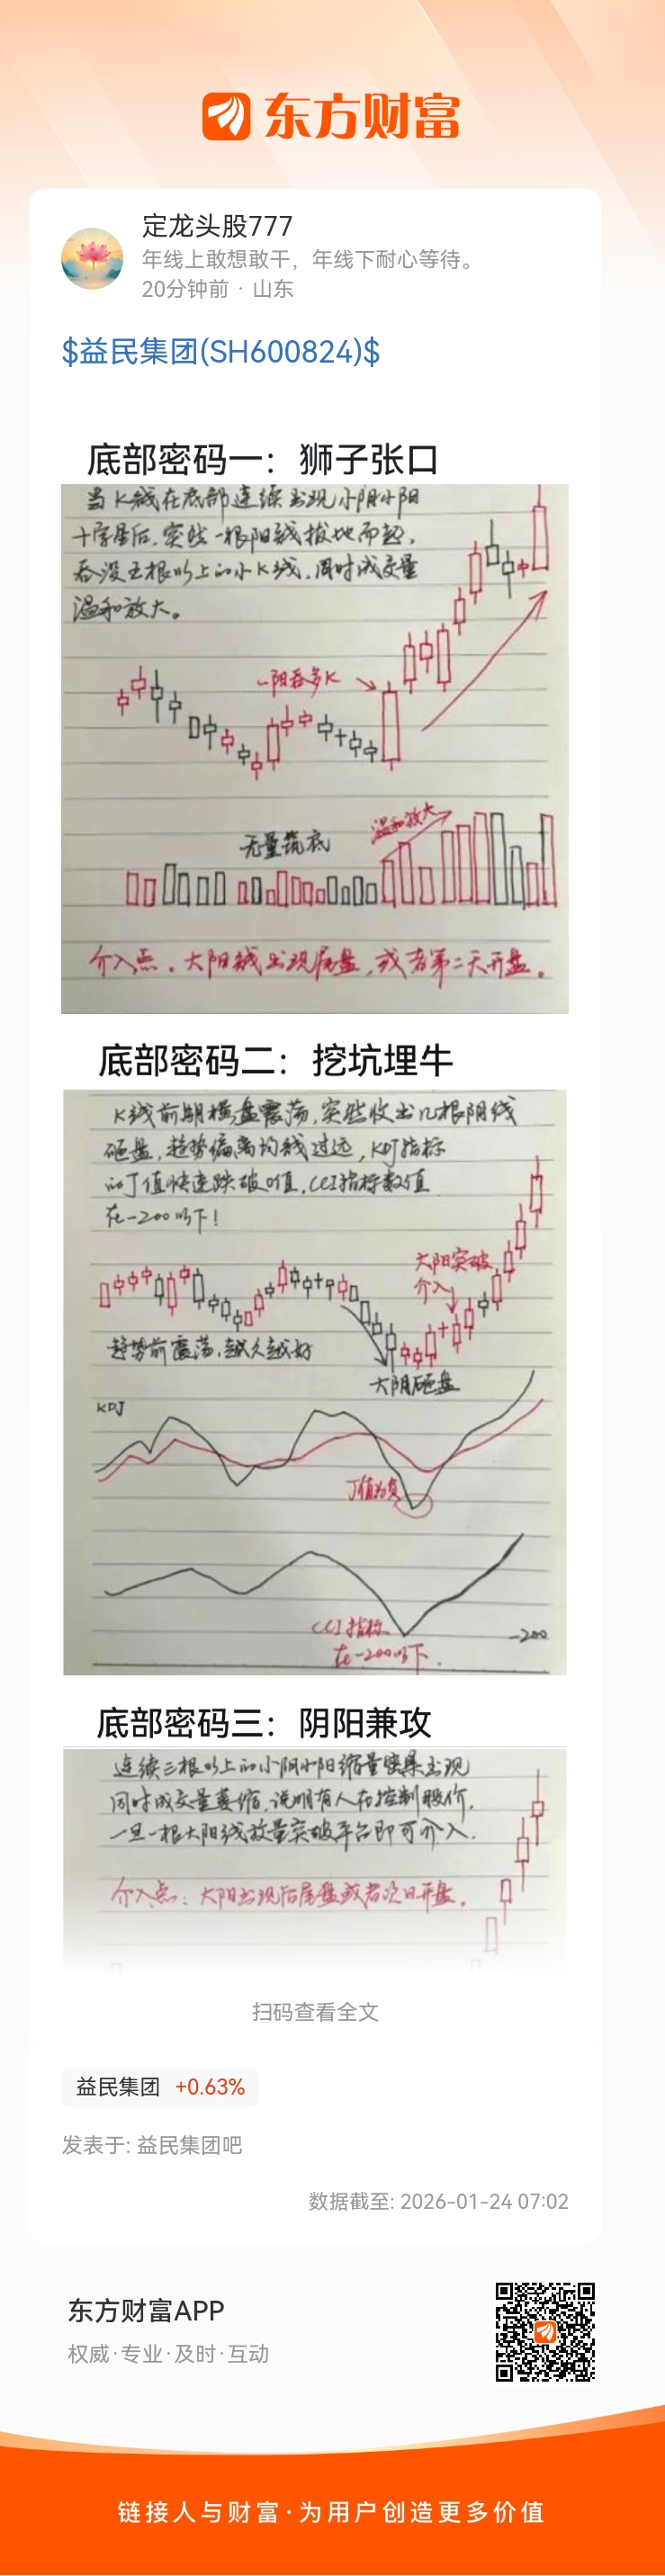 东方财富
定龙头股777
年线上敢想敢干，年线下耐心等待。
20分钟前 · 山东
$益民集团(SH600824)$
底部密码一：狮子张口
当K线在底部连续出现小阴小阳
十字星后，突然一根阳线拔地而起，
吞没五根以上的小K线，同时成交量
温和放大。
一阳吞多K
无量筑底
温和放大
介入点。大阳线出现尾盘，或者第二天开盘。
底部密码二：挖坑埋牛
K线前期横盘震荡，突然收出几根阴线
砸盘，趋势偏离均线过远，KDJ指标
的J值快速跌破0值，CCI指标数值
在-200以下！
大阳突破
介入
趋势前震荡，越久越好
大阴砸盘
KDJ
J值为负
CCI指标
在-200以下.
-200
底部密码三：阴阳兼攻
连续三根以上的小阴小阳缩量密集出现
同时成交量萎缩，说明有人在控制股价，
一旦一根大阳线放量突破平台即可介入.
介入点：大阳出现后尾盘或者次日开盘。
扫码查看全文
益民集团 +0.63%
发表于: 益民集团吧
数据截至: 2026-01-24 07:02
东方财富APP
权威·专业·及时·互动
链接人与财富·为用户创造更多价值